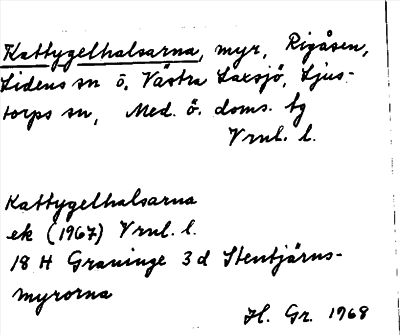 Kattygelhalsarna, myr, Rigåsen,
Lidens sn ö. Västra Laxsjö, Ljus-
torps sn, Med. ö. doms. tg
Vrnl. l.
Kattygelhalsarna
ek (1967) Vrnl. l.
18 H Graninge 3d Stentjärns-
myrorna
H. Gr. 1968